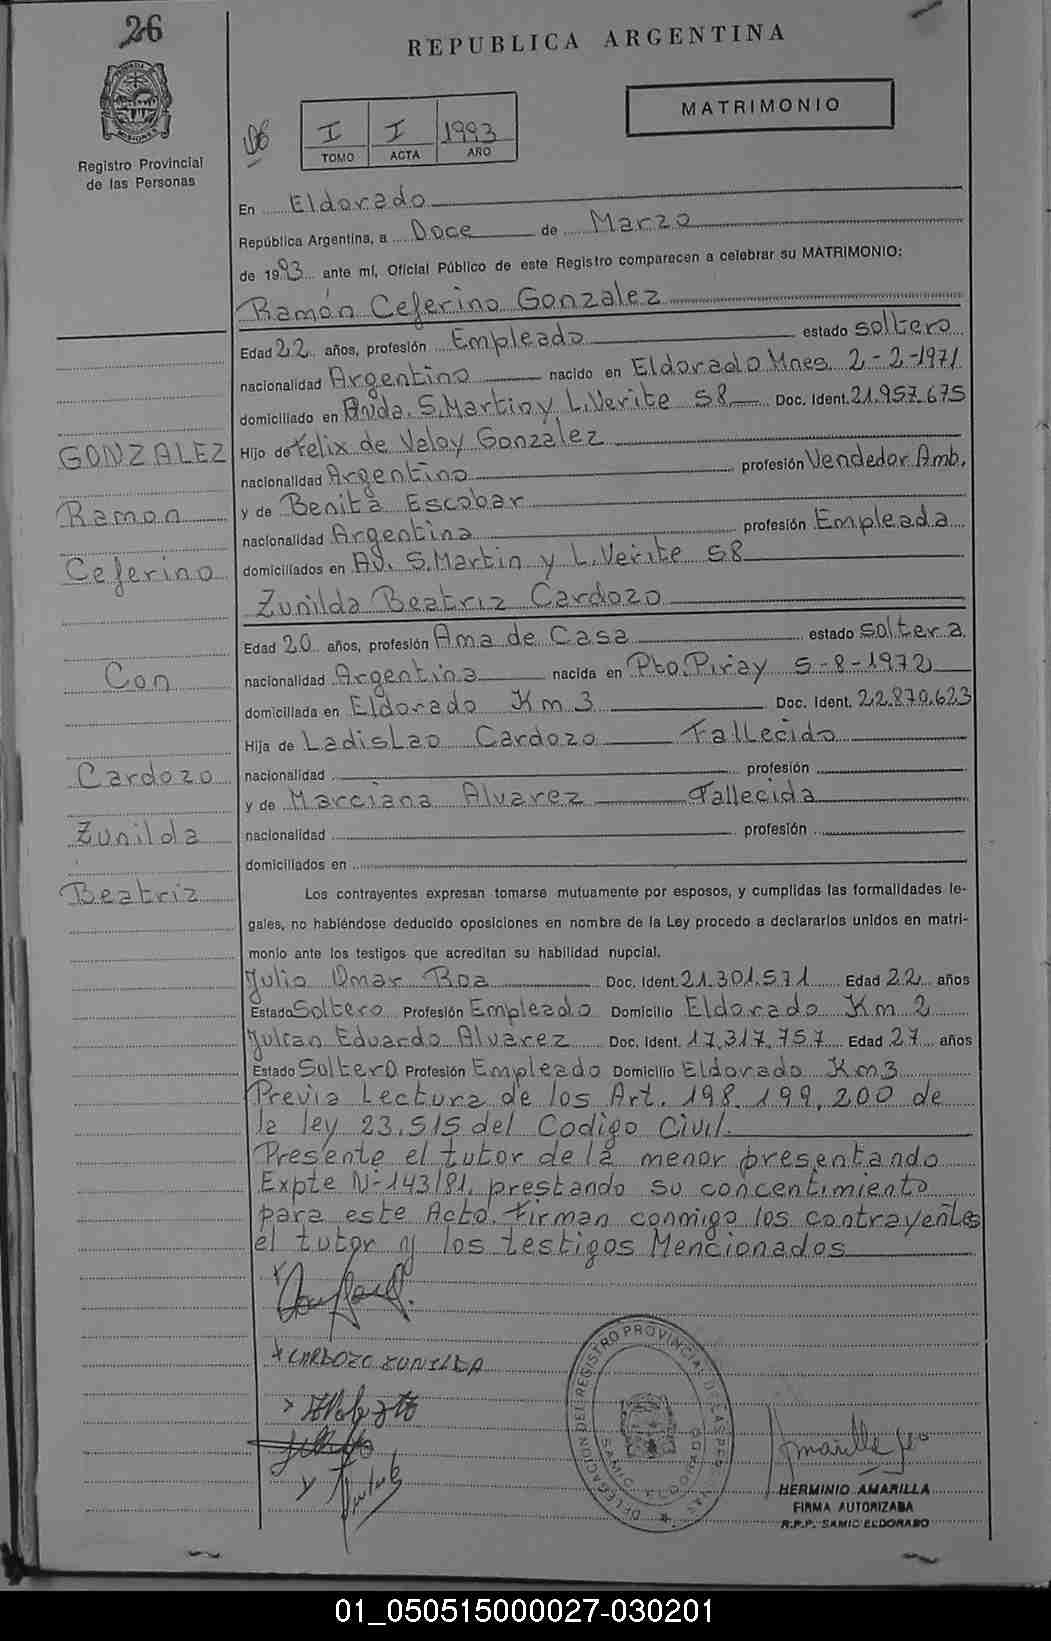 26
REPUBLICA ARGENTINA
MATRIMONIO
PROVINCIA MISIONES
Registro Provincial
de las Personas
I I 1993
TOMO ACTA AÑO
En Eldorado
República Argentina, a Doce de Marzo
de 1993 ante mí, Oficial Público de este Registro comparecen a celebrar su MATRIMONIO:
Ramón Ceferino Gonzalez
Edad 22 años, profesión Empleado estado soltero
nacionalidad Argentino nacido en Eldorado Mnes 2-2-1971
domiciliado en Avda. S.Martin y L.Verite 58 Doc. Ident. 21.957.675
GONZALEZ
Hijo de Felix de Valoy Gonzalez
nacionalidad Argentino profesión Vendedor Amb.
Ramon
y de Benita Escobar
nacionalidad Argentina profesión Empleada
Ceferino
domiciliados en AV. S.Martin y L.Verite 58
Zunilda Beatriz Cardozo
Edad 20 años, profesión Ama de Casa estado soltera
Con
nacionalidad Argentina nacida en Pto.Piray 5-8-1972
domiciliada en Eldorado Km 3 Doc. Ident. 22.870.623
Hija de Ladislao Cardozo Fallecido
Cardozo
nacionalidad profesión
y de Marciana Alvarez Fallecida
Zunilda
nacionalidad profesión
domiciliados en
Beatriz
Los contrayentes expresan tomarse mutuamente por esposos, y cumplidas las formalidades le-
gales, no habiéndose deducido oposiciones en nombre de la Ley procedo a declararlos unidos en matri-
monio ante los testigos que acreditan su habilidad nupcial.
Julio Omar Roa Doc. Ident. 21.301.571 Edad 22 años
Estado Soltero Profesión Empleado Domicilio Eldorado Km 2
Julian Eduardo Alvarez Doc. Ident. 17.317.757 Edad 27 años
Estado Soltero Profesión Empleado Domicilio Eldorado Km3
Previa Lectura de los Art. 198. 199. 200 de
la ley 23.515 del Codigo Civil.
Presente el tutor de la menor presentando
Expte N-143/81, prestando su concentimiento
para este Acto. Firman conmigo los contrayentes
el tutor y los testigos Mencionados
CARDOZO ZUNILDA
DELEGACION DEL REGISTRO PROVINCIAL DE LAS PERSONAS
SAMIC ELDORADO
HERMINIO AMARILLA
FIRMA AUTORIZADA
R.P.P. SAMIC ELDORADO
01_050515000027-030201